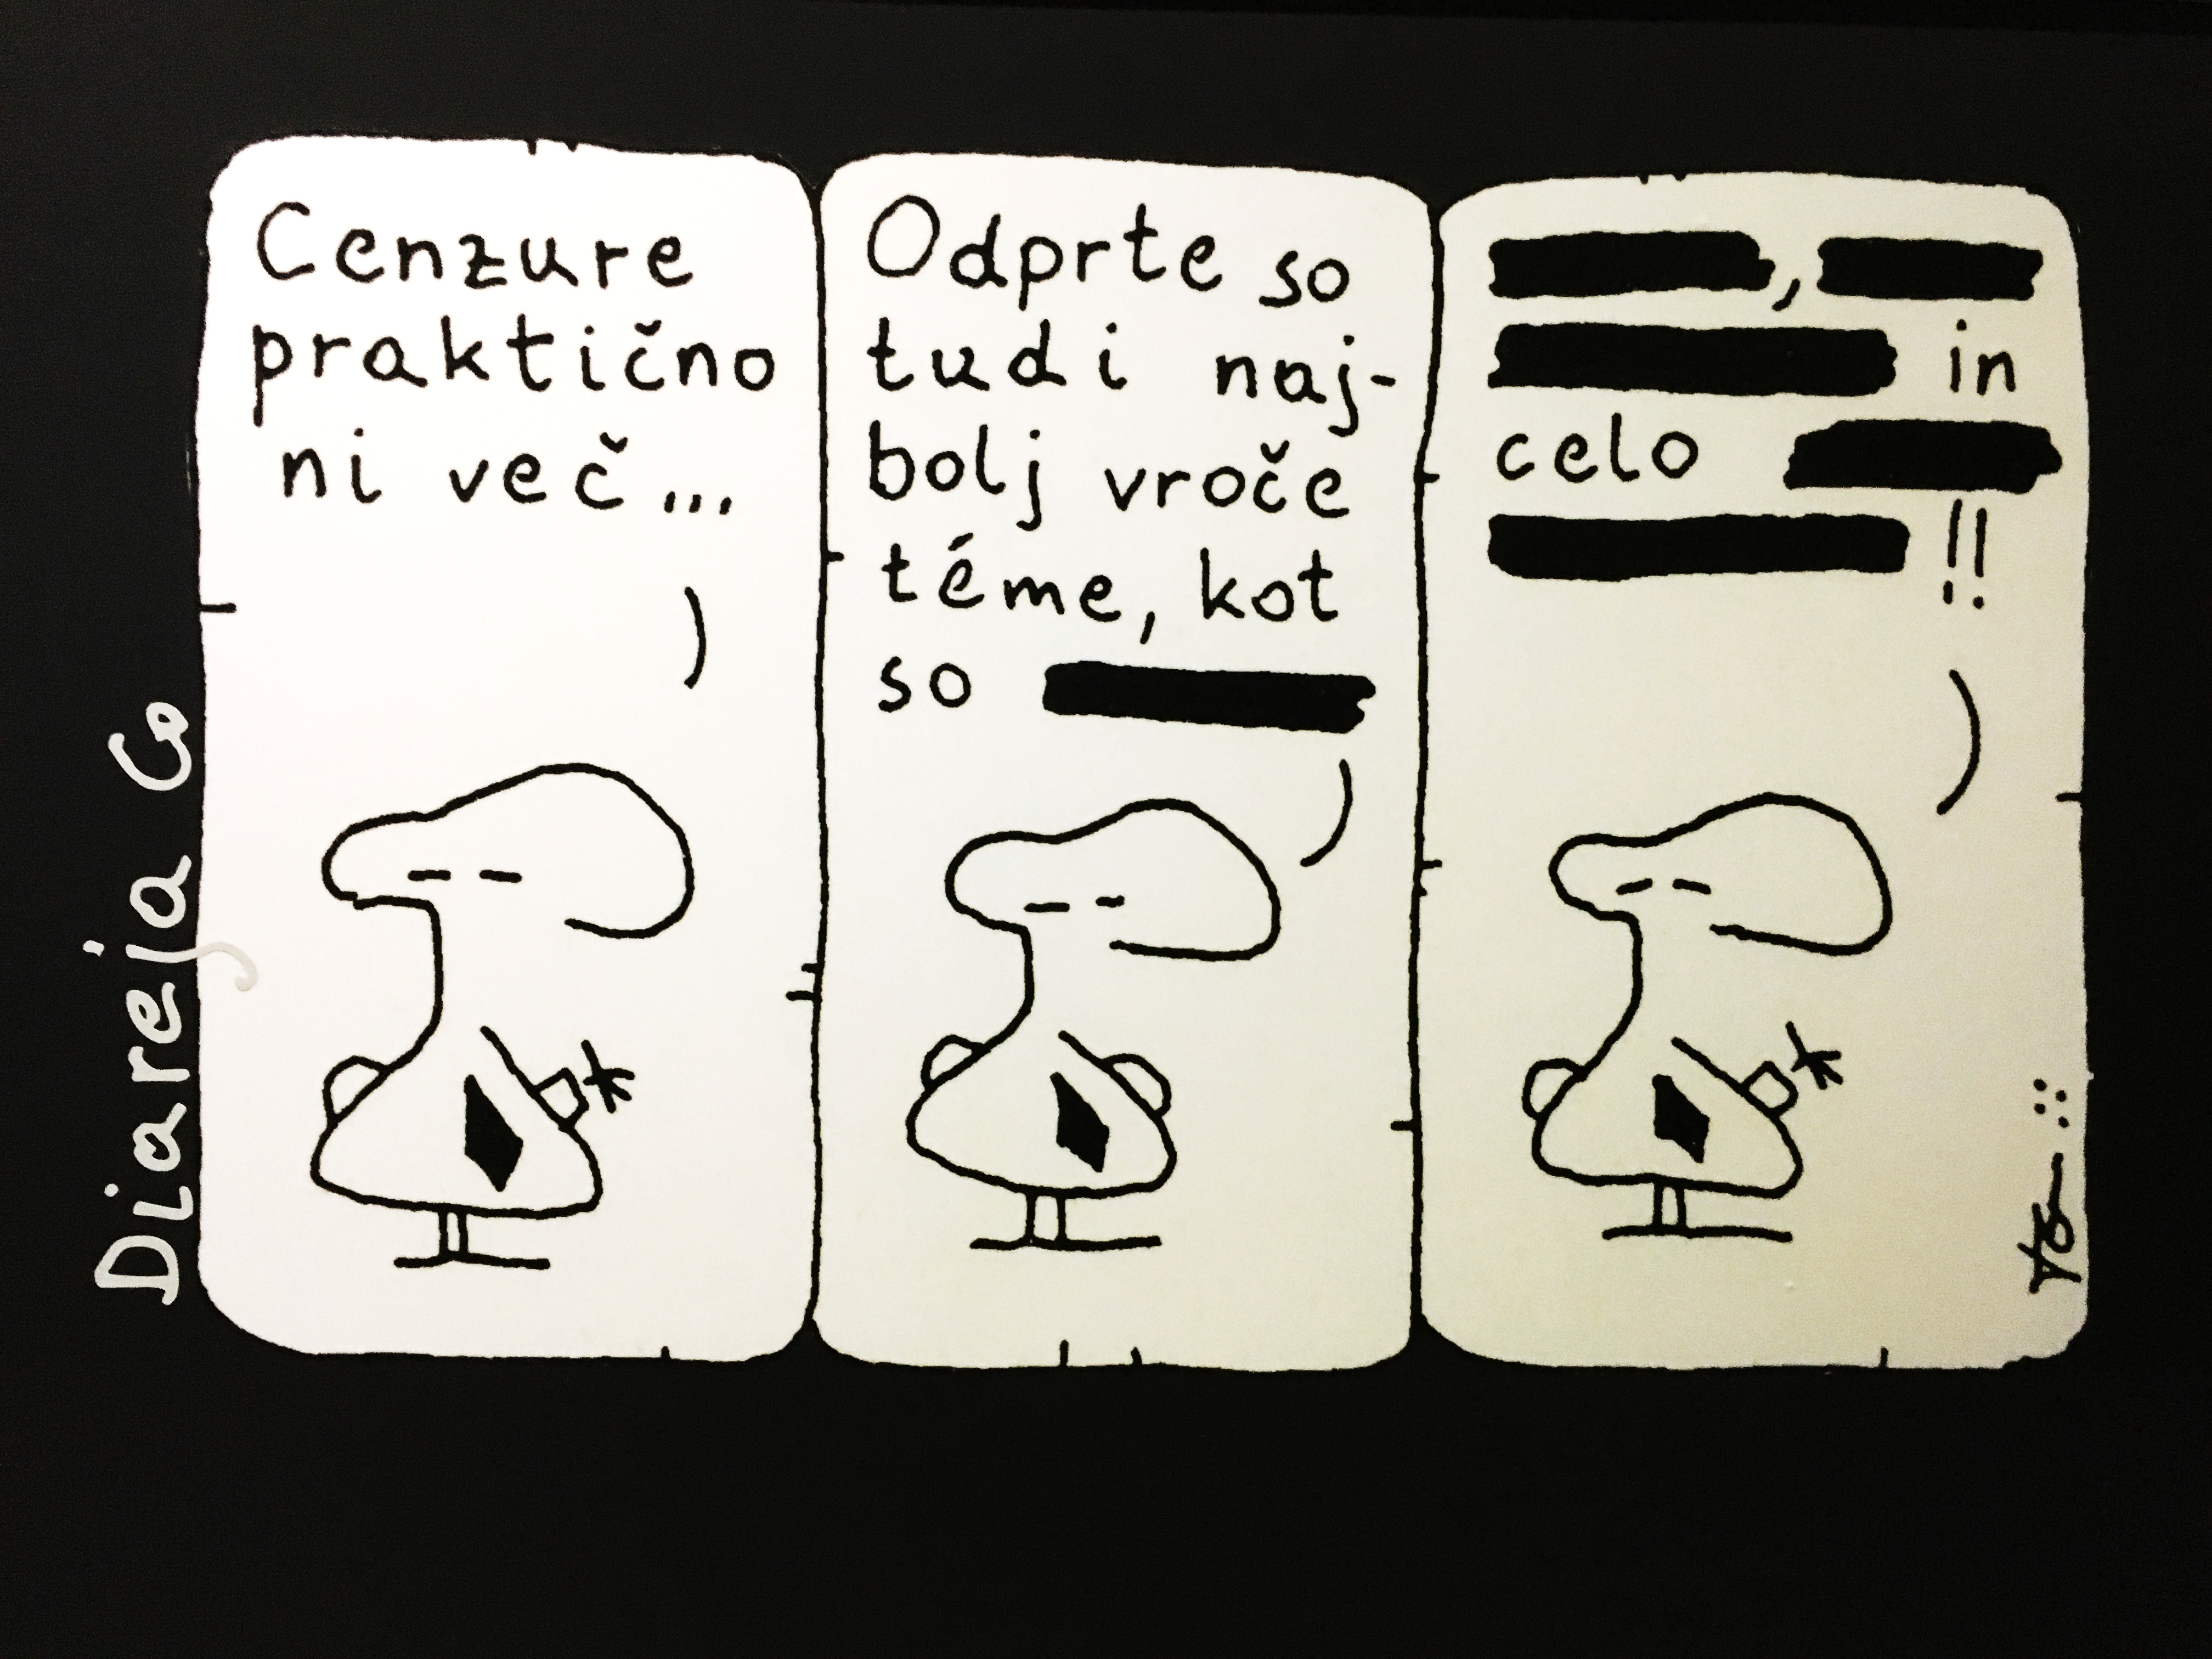 Diareja Co
Cenzure
praktično
ni več...
Odprte so
tudi naj-
bolj vroče
téme, kot
so
,
in
celo
!!